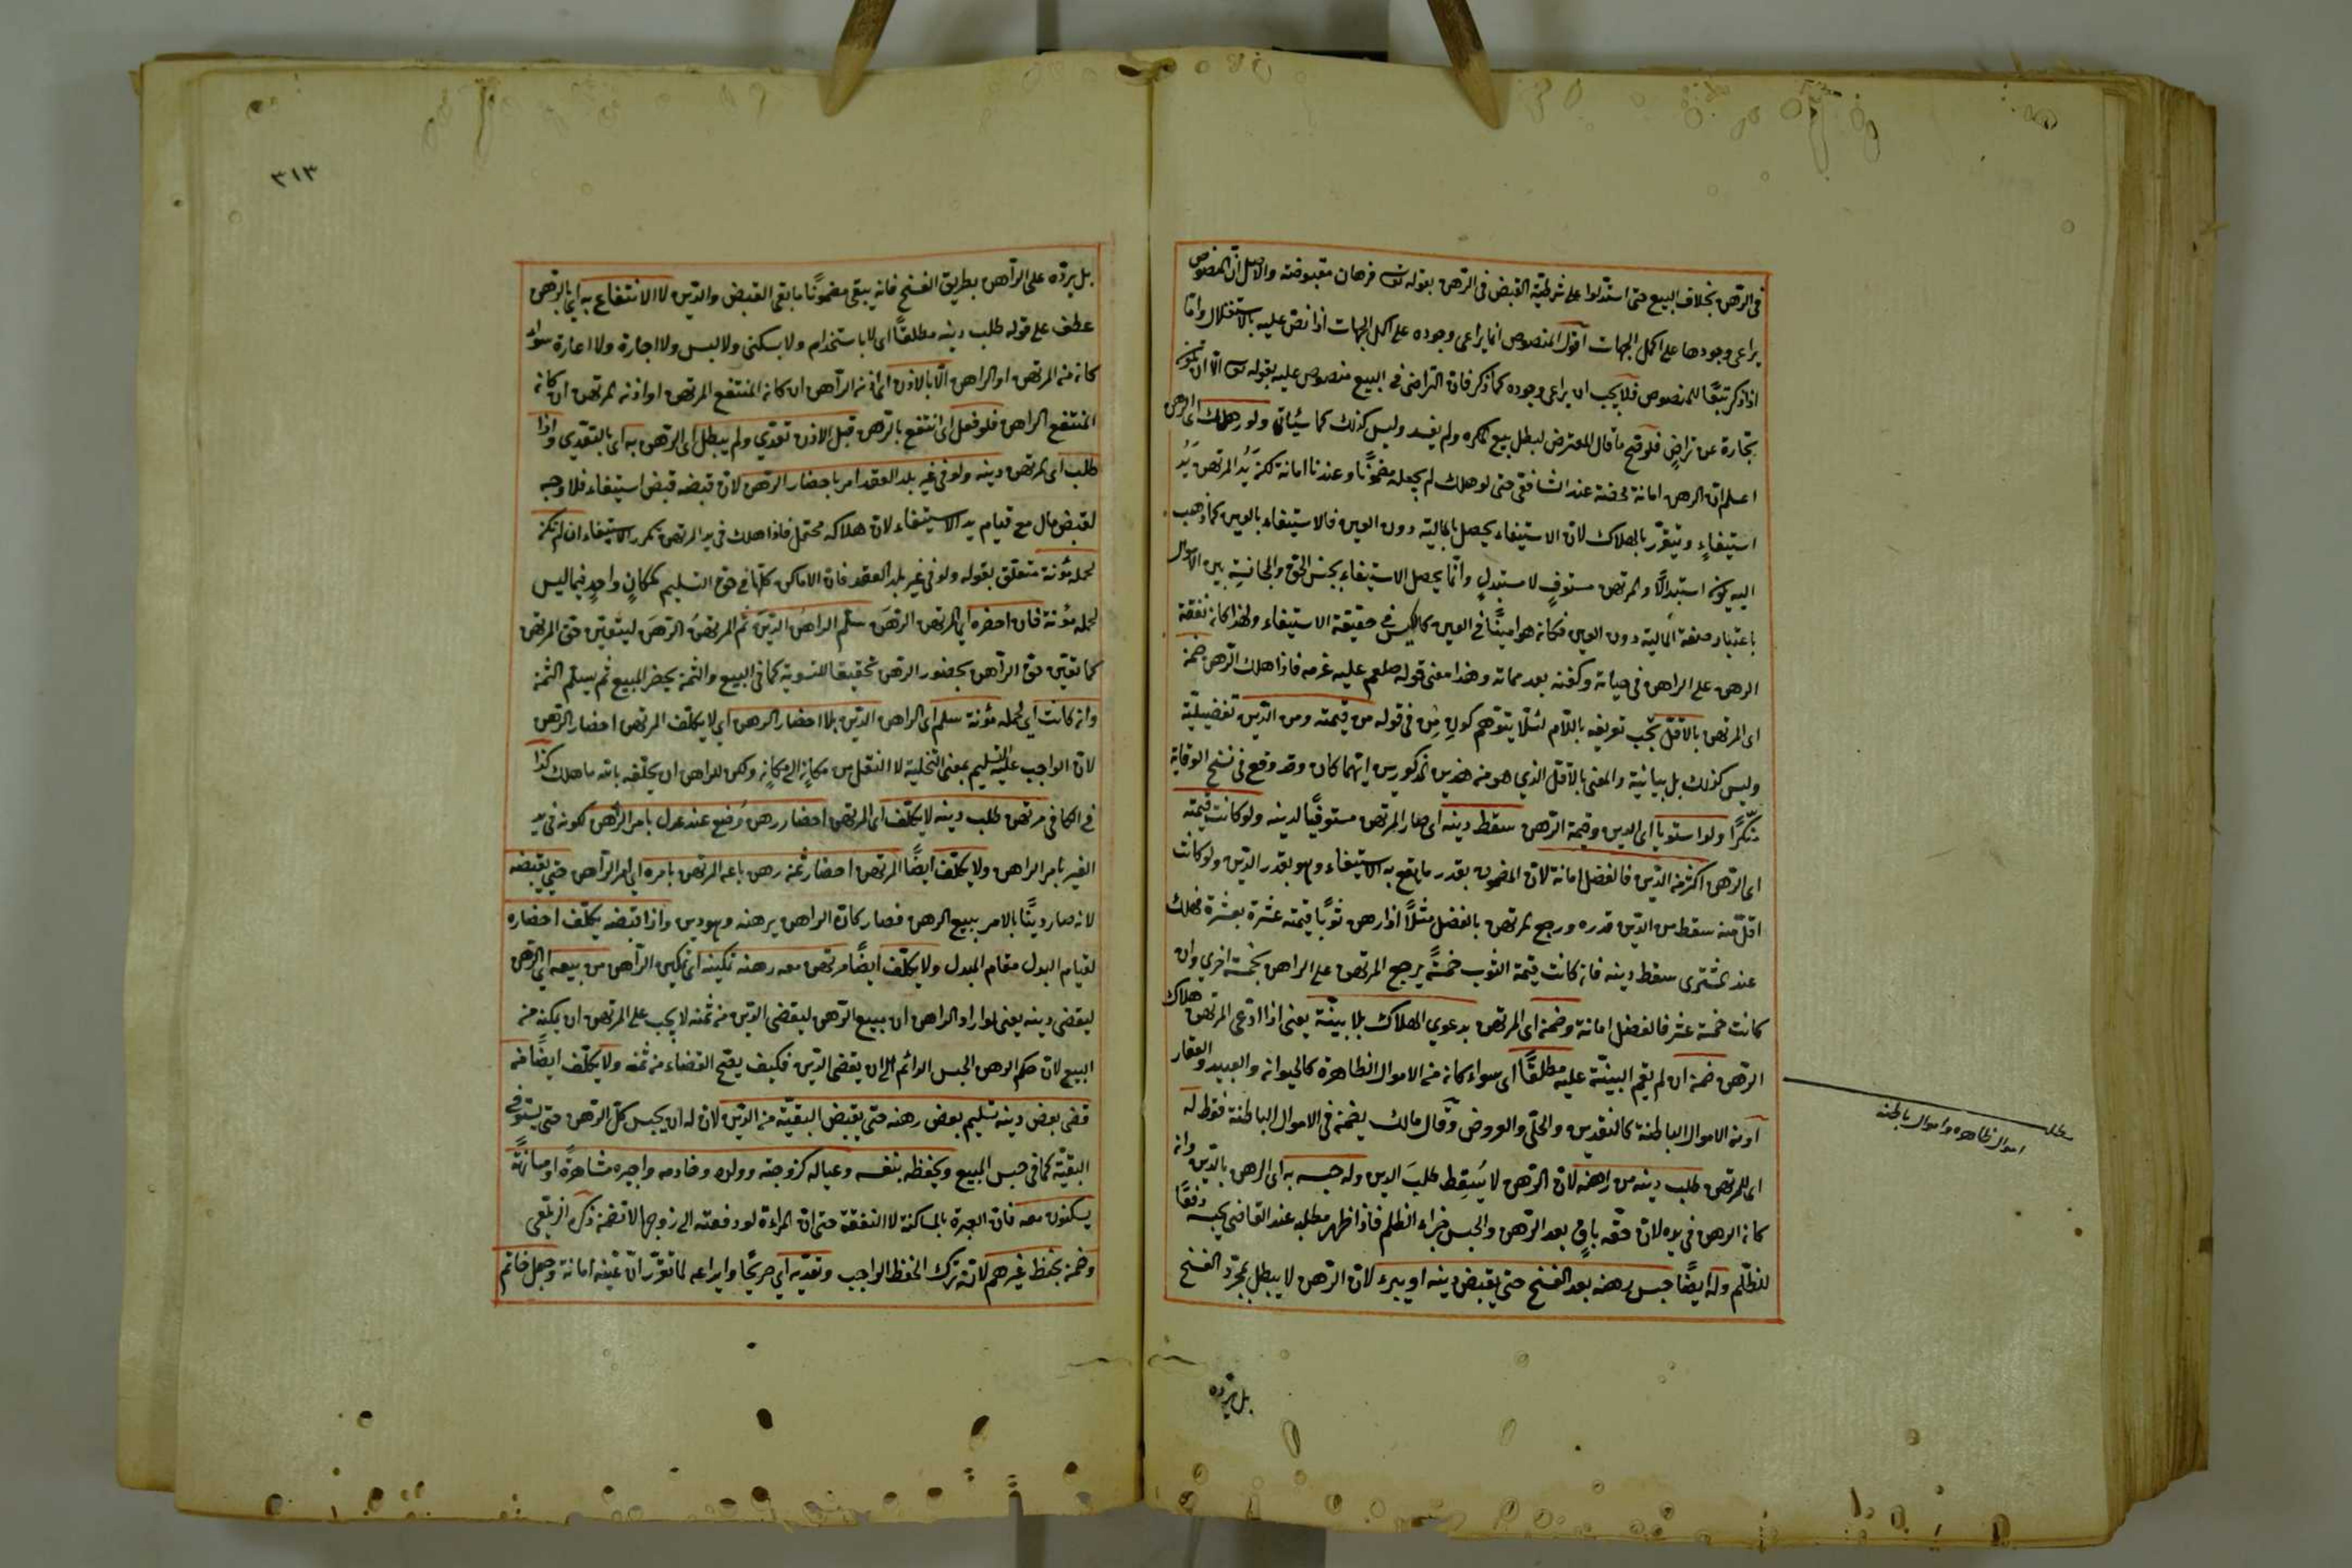 في الرهن بخلاف البيع حتى استدلوا على شرطية القبض في الرهن بقوله تعـ فرهان مقبوضة والاصل ان المنصوص
يراعى وجودها على اكمل الجهات اقول المنصوص انما يراعى وجوده على اكمل الجهات اذا نص عليه بالاستقلال واما
اذا ذكر تبعًا للمنصوص فلا يجب ان يراعى وجوده كما ذكر فان التراضي في البيع منصوص عليه بقوله تعـ الا ان تكون
تجارة عن تراضٍ فلو صح ما قال المعترض لبطل بيع المكره ولم يفسد وليس كذلك كما سيأتي ولو هلك اى الرهن
اعلم ان الرهن امانة محضة عند الشافعى حتى لو هلك لم يجعله مضمونًا وعندنا امانة لكن يد المرتهن يد
استيفاءٍ ويتقرر بالهلاك لان الاستيفاء يحصل بالمالية دون العين فالاستيفاء بالعين كما ذهب
اليه يكون استبدالًا والمرتهن مستوفٍ لا مستبدلٍ وانما يحصل الاستيفاء بجنس الحق والمجانسة بين الاموال
باعتبار صفة المالية دون العين فكان هو امينًا في العين كالكيس في حقيقة الاستيفاء ولهذا كان نفقة
الرهن على الراهن في حياته وكفنه بعد مماته وهذا معنى قوله صلعم عليه غرمه فاذا هلك الرهن ضمن
اى المرتهن بالاقل يجب تعريفه باللام لئلا يتوهم كون مِن في قوله من قيمته ومن الدين تفضيلية
وليس كذلك بل بيانية والمعنى بالاقل الذي هو من هذين المذكورين ايهما كان وقد وقع في نسخ الوقاية
منكرًا ولو استويا اى الدين وقيمة الرهن سقط دينه اى صار المرتهن مستوفيًا لدينه ولو كانت قيمته
اى الرهن اكثر من الدين فالفضل امانة لان المضمون بقدر ما يقع به الاستيفاء وهو بقدر الدين ولو كانت
اقل منه سقط من الدين قدره ورجع المرتهن بالفضل مثلًا اذا رهن ثوبًا قيمته عشرة بعشرة فهلك
عند المشترى سقط دينه فان كانت قيمة الثوب خمسةً يرجع المرتهن على الراهن بخمسة اخرى وان
كانت خمسة عشر فالفضل امانة وضمن اى المرتهن بدعوي الهلاك بلا بينة يعنى اذا ادعى المرتهن هلاك
الرهن ضمن ان لم يقم البينة عليه مطلقًا اى سواء كان من الاموال الظاهرة كالحيوان والعبيد والعقار
او من الاموال الباطنة كالنقدين والحلى والعروض وقال مالك يضمن في الاموال الباطنة فقط له
اى للمرتهن طلب دينه من راهنه لان الرهن لا يُسقِط طلبَ الدين وله حبسه به اى الراهن بالدين وان
كان الرهن في يده لان حقه باقٍ بعد الرهن والحبس جزاء الظلم فاذا ظهر مطله عند القاضى يحبسه دفعًا
للظلم وله ايضًا حبس رهنه بعد الفسخ حتى يقبض دينه او يبرء لان الرهن لا يبطل بمجرد الفسخ
بل يرده
مطلب
اموال ظاهره واموال باطنه
٣١٣
بل يرده على الراهن بطريق الفسخ فانه يبقى مضمونًا ما بقى القبض والدين لا الانتفاع به اي بالرهن
عطف على قوله طلب دينه مطلقًا اى لا باستخدام ولا سكنى ولا لبس ولا اجارة ولا اعارة سواء
كان من المرتهن او الراهن الّا بالاذن اى اذن الراهن ان كان المنتفع المرتهن او اذن المرتهن ان كان
المنتفع الراهن فلو فعل اى انتفع بالرهن قبل الاذن تعدّي ولم يبطل اى الرهن به اى بالتعدي واذا
طلب اى المرتهن دينه ولو في غير بلد العقد امر باحضار الرهن لان قبضه قبض استيفاء فلا وجه
لقبض مال مع قيام يد الاستيفاء لان هلاكه محتمل فاذا هلك في يد المرتهن تكرر الاستيفاء ان لم يكن
لحمله مؤنة متعلق بقوله ولو في غير بلد العقد فان الاماكن كلها في حق التسليم كمكانٍ واحدٍ فيما ليس
لحمله مؤنة فان احضره اي المرتهن الرهن سلم الراهن الدين ثم المرتهنُ الرهنَ ليتعين حق المرتهن
كما تعين حق الراهن بحضور الرهن تحقيقا للتسوية كما في البيع والثمن يحضر المبيع ثم يسلم الثمن
وان كانت اي لحمله مؤنة سلم اى الراهن الدين بلا احضار الرهن اي لا يكلف المرتهن احضار الرهن
لان الواجب عليه التسليم بمعنى التخلية لا النقل من مكانٍ الى مكانٍ ولكن للراهن ان يحلفه بالله ما هلك كذا
في الكافى مرتهن طلب دينه لا يكلف اى المرتهن احضار رهن وُضع عند عدل بامر الراهن لكونه في يد
الغير بامر الراهن ولا يكلف ايضًا المرتهن احضار ثمن رهن باعه المرتهن بامره اى امر الراهن حتى يقبضه
لانه صار دينًا بالامر ببيع الرهن فصار كان الراهن رهنه وهو دين واذا قبضه يكلف احضاره
لقيام البدل مقام المبدل ولا يكلف ايضًا مرتهن معه رهنه تمكينه اى تمكين الراهن من بيعه اي الرهن
ليقضى دينه يعنى لو اراد الراهن ان يبيع الرهن ليقضى الدين من ثمنه لا يجب على المرتهن ان يمكنه من
البيع لان حكم الرهن الحبس الدائم الى ان يقضى الدين فكيف يصح القضاء من ثمنه ولا يكلف ايضًا من
قضى بعض دينه تسليم بعض رهنه حتى يقبض البقية من الدين لان له ان يحبس كل الرهن حتى يستوفى
البقية كما في حبس المبيع ويحفظه بنفسه وعياله كزوجته وولده وخادمه واجيره مشاهرةً او مسانهةً
يسكنون معه فان العبرة بالمساكنة لا النفقة حتى ان المراءة لو دفعته الى زوجها لا تضمن ذكره الزيلعى
وضمن بحفظ غيرهم لانه ترك الحفظ الواجب وتعديه اي صريحًا وايداعه لما تقرر ان عينه امانة وجعل خاتم